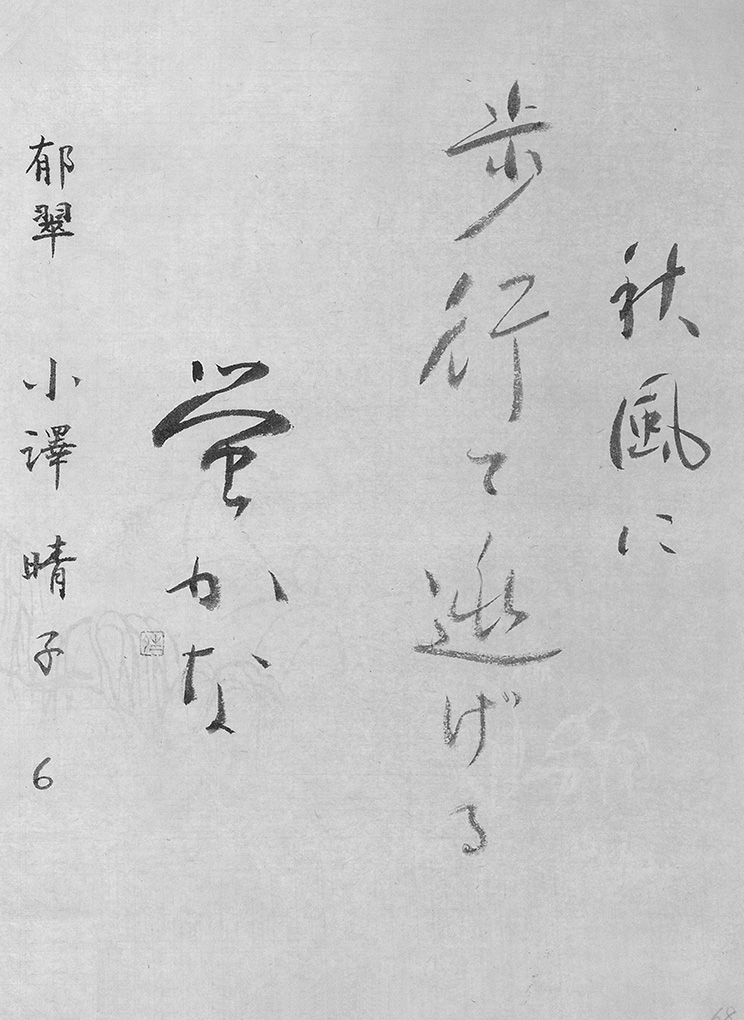 秋風に
歩行て逃げる
蛍かな
郁翠 小澤晴子 6
68